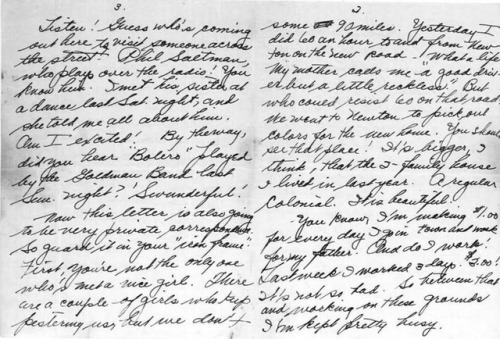 3.
Listen! Guess who's coming
out here to visit someone across
the street. Phil Saltman,
who plays over the radio. You
know him. I met his sister at
a dance last Sat. night, and
she told me all about him.
Am I excited! By the way,
did you hear "Bolero" played
by the Goldman Band last
Sun. night? 'Swunderful!
Now this letter is also going
to be very private correspondence.
So guard it in your "iron frame".
First, you're not the only one
who's met a nice girl. There
are a couple of girls who keep
pestering us, but we don't
2.
some 90 miles. Yesterday I
did 60 an hour to and from New-
ton on the new road! What a life!
My mother calls me "a good driv-
er but a little reckless." But
who could resist 60 on that road.
We went to Newton to pick out
colors for the new home. You should
see that place! It's bigger, I
think, that the 3-family house
I lived in last year. A regular
Colonial. It is beautiful.
You know, I'm making $1.00
for every day I go in town and work
for my father. And do I work!
Last week I worked 3 days. $3.00!
It's not so bad. So between that
and working on these grounds
I'm kept pretty busy.